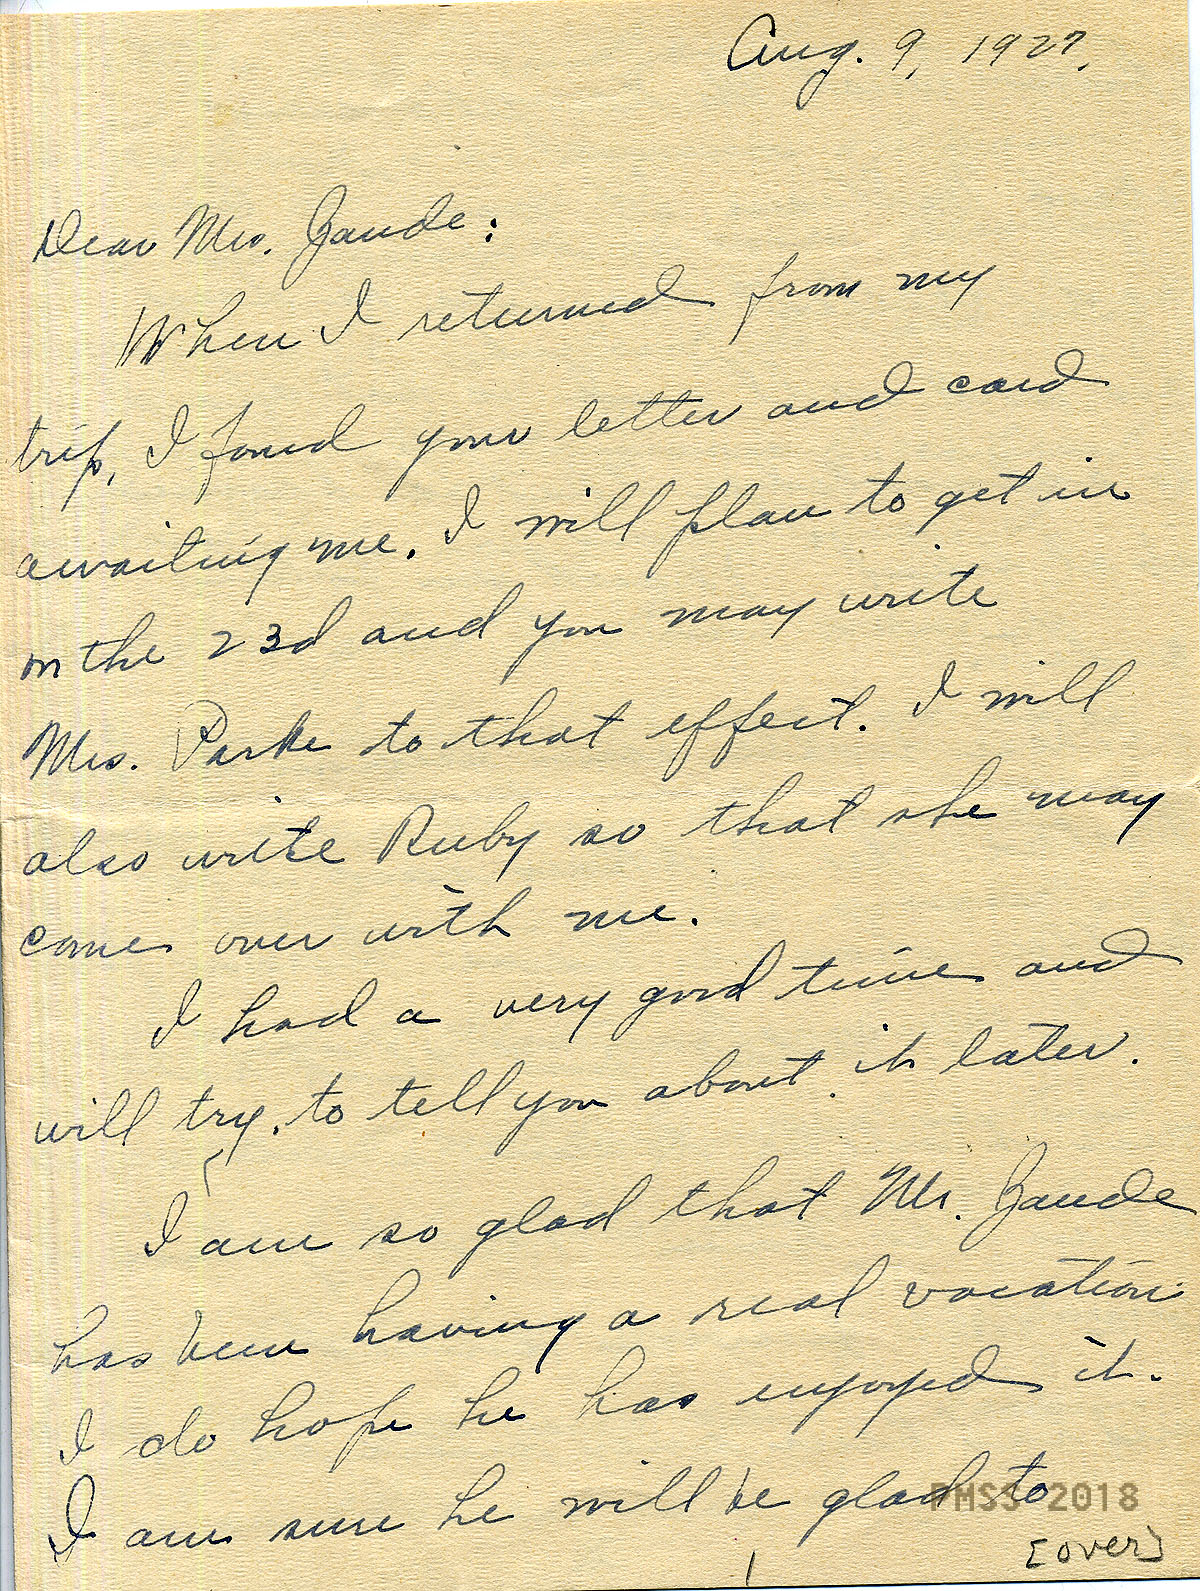 Aug. 9, 1927.
Dear Mrs. Zande:
When I returned from my
trip, I found your letter and card
awaiting me. I will plan to get in
on the 23d and you may write
Mrs. Parke to that effect. I will
also write Ruby so that she may
come over with me.
I had a very good time and
will try to tell you about it later.
I am so glad that Mr. Zande
has been having a real vacation
I do hope he has enjoyed it.
I am sure he will be glad to
PMSS 2018
[over]